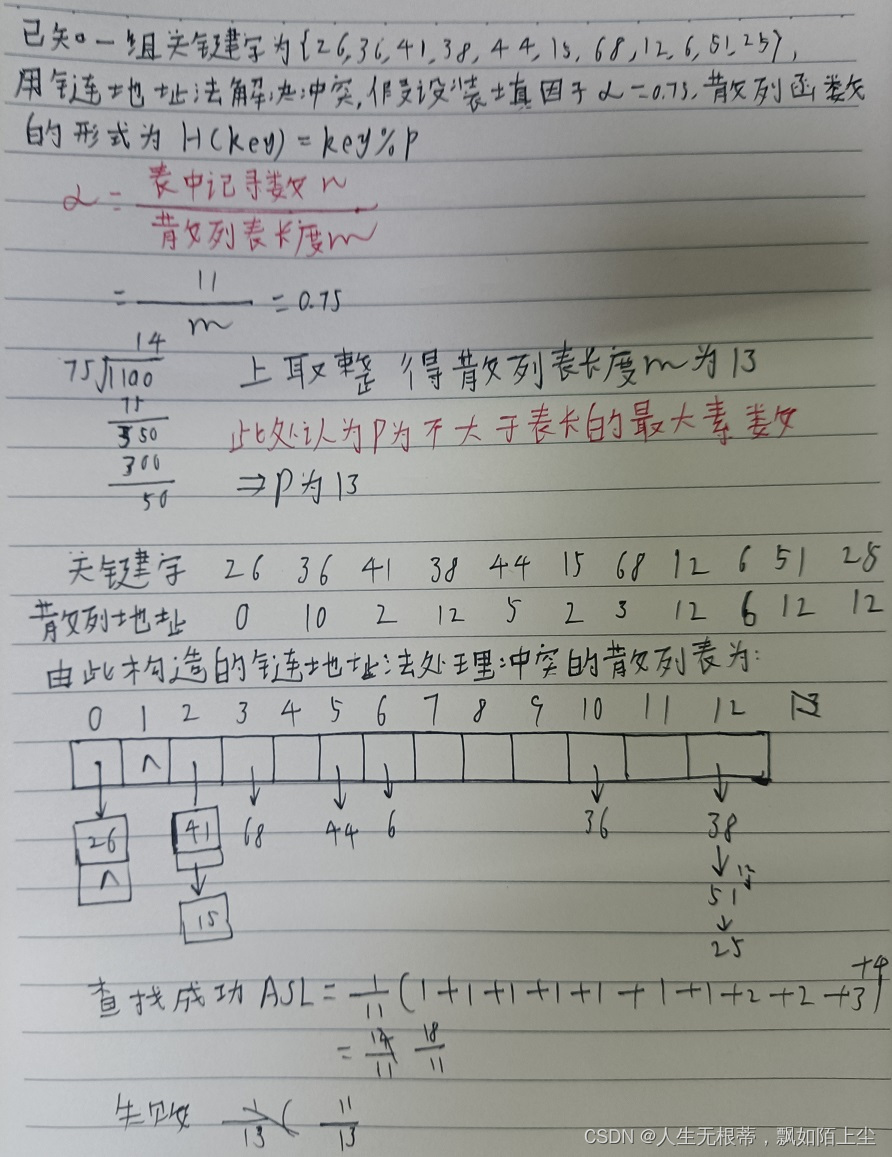 已知一组关键字为{26,36,41,38,44,15,68,12,6,51,25},
用链地址法解决冲突,假设装填因子α=0.75,散列函数
的形式为 H(key)=key%P
α = 表中记录数n
散列表长度m
= 11/m = 0.75
14
75√1100
75
350
300
50
上取整 得散列表长度m为13
此处认为P为不大于表长的最大素数
⇒P为13
关键字 26 36 41 38 44 15 68 12 6 51 25
散列地址 0 10 2 12 5 2 3 12 6 12 12
由此构造的链地址法处理冲突的散列表为:
0 1 2 3 4 5 6 7 8 9 10 11 12 13
∧
26 41 68 44 6 36 38
∧ 12
51
15
25
查找成功 ASL = 1/11 (1+1+1+1+1+1+1+2+2+3+4)
= 14/11 18/11
失败 1/13 ( 11/13
CSDN @人生无根蒂,飘如陌上尘